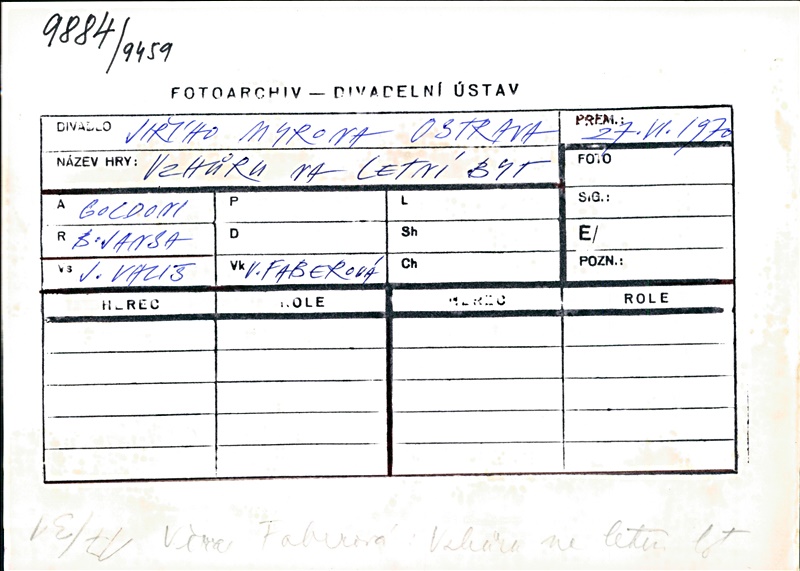 9884/9459
FOTOARCHIV — DIVADELNÍ ÚSTAV
DIVADLO JIŘÍHO MYRONA OSTRAVA PREM.: 27.VI.1970
NÁZEV HRY: VZHŮRU NA LETNÍ BYT FOTO
A GOLDONI P L SIG.:
R B. JANSA D Sh E/
Vs J. VALIŠ Vk V. FABEROVÁ Ch POZN.:
HEREC ROLE HEREC ROLE
Věra Faberová: Vzhůru na letní byt